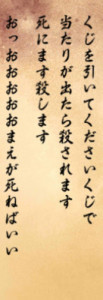 くじを引いてくださいくじで
当たりが出たら殺されます
死にます殺します
おっおおおおおまえが死ねばいい